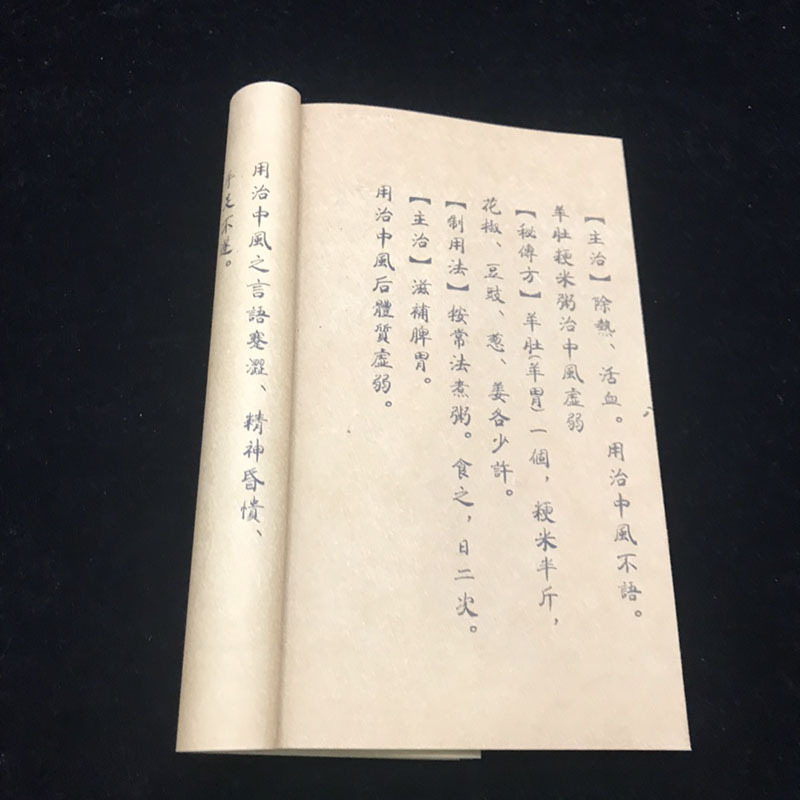 【主治】除熱、活血。用治中風不語。
羊肚粳米粥治中風虛弱
【秘傳方】羊肚(羊胃)一個，粳米半斤，
花椒、豆豉、蔥、姜各少許。
【制用法】按常法煮粥。食之，日二次。
【主治】滋補脾胃。
用治中風后體質虛弱。
用治中風之言語蹇澀、精神昏憒、
手足不遂。